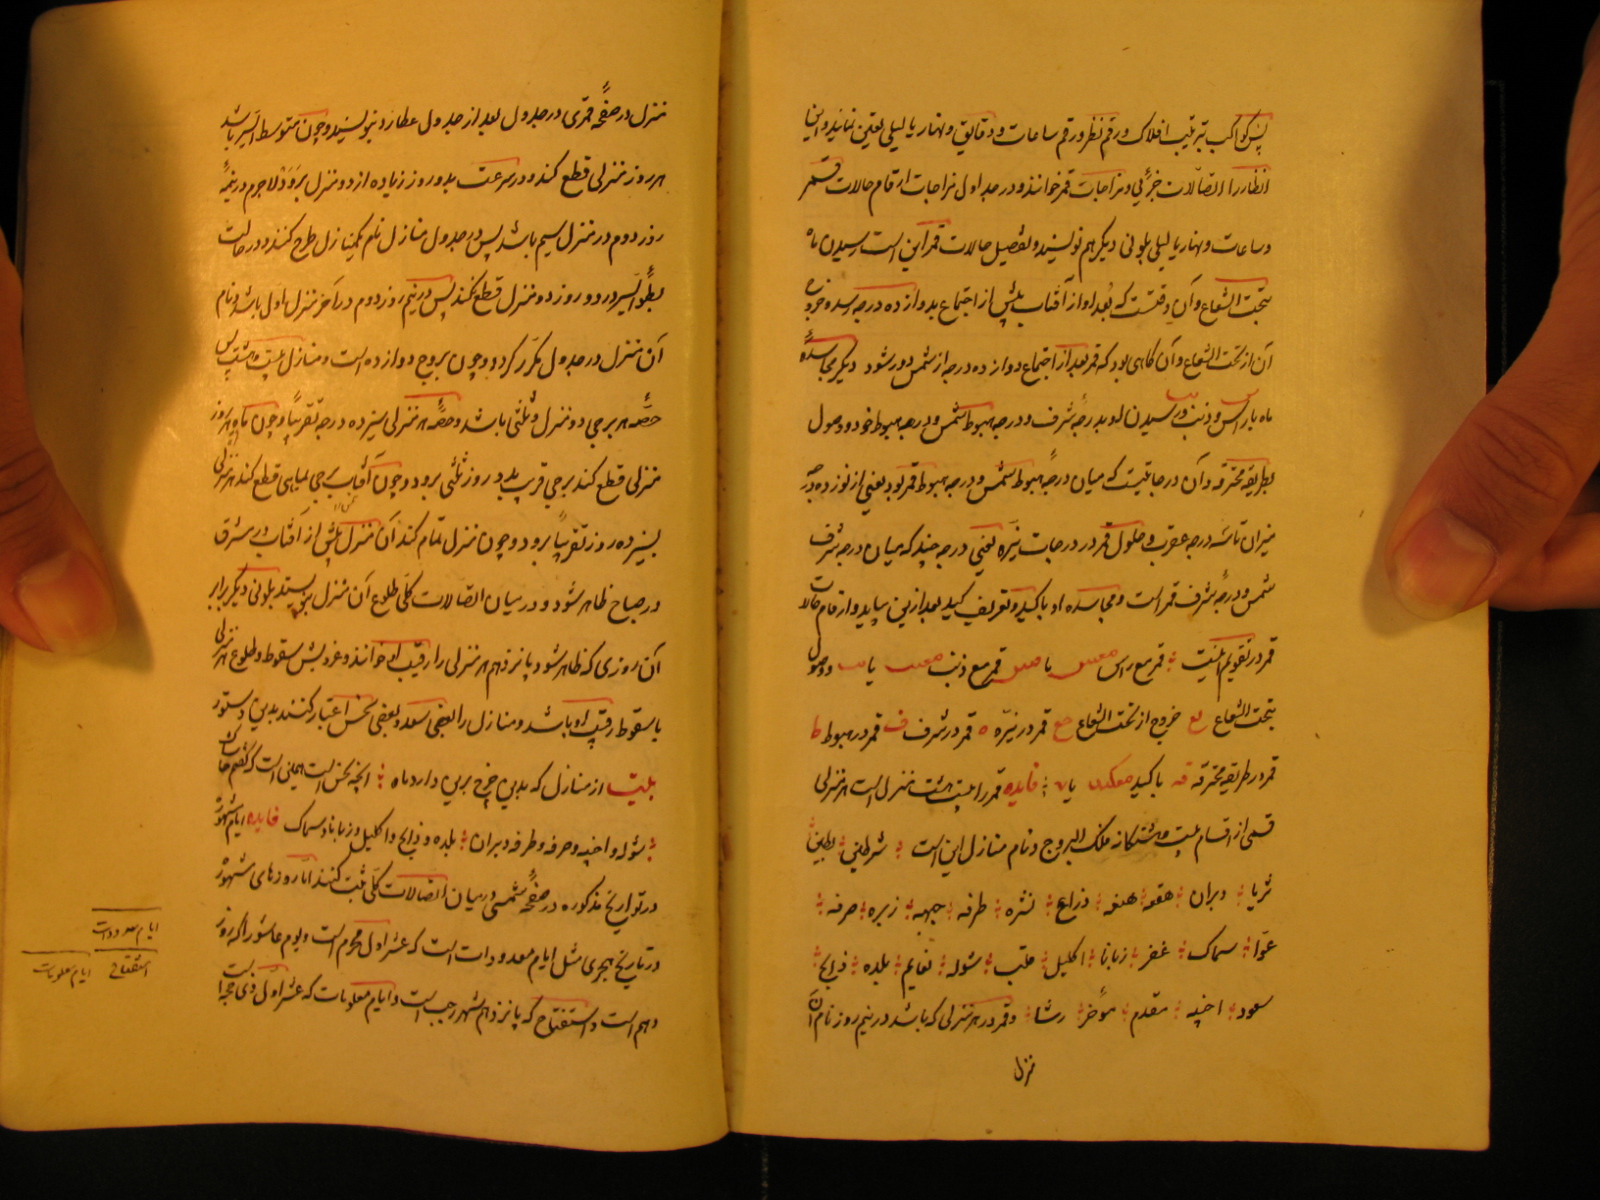 پس کواکب بترتیب افلاک و رقم نظر و رقم ساعات و دقایق و نهار یا لیلی تعین نمایند و این
انظار را اتصالات جزئی و مزاجات قمر خوانند و در جداول مزاجات ارقام حالات قمر
و ساعات و نهار یا لیلی بلونی دیگر هم نویسند و تفصیل حالات قمر این است رسیدن ماه
بتحت الشعاع و آن وقتست که بُعد او از آفتاب پیش از اجتماع بدوازده درجه رسد و خروج
آن از تحت الشعاع و آن گاهی بود که قمر بعد از اجتماع دوازده درجه از شمس دور شود دیگر مجاسده
ماه با راس و ذنب و رسیدن او بدرجه شرف و درجه هبوط شمس و درجه هبوط خود و وصول
بطریقه محترقه و آن درجاتیست که میان درجه هبوط شمس و درجه هبوط قمر بود یعنی از نوزده درجه
میزان تا سه درجه عقرب و حلول قمر در درجات نیّره یعنی درجه چند که میان درجه شرف
شمس و درجه شرف قمر است و مجاسده او با کید و تعریف کید بعد ازین بیاید و ارقام حالات
قمر در تقویم اینست قمر مع راس یا قمر مع ذنب یا و وصول
بتحت الشعاع خروج از تحت الشعاع قمر در نیّره ه قمر در شرف ف قمر در هبوط ط
قمر در طریقه محترقه قه با کید یا فایده قمر را بیست و هشت منزل است هر منزلی
قسمی از اقسام بیست و هشتگانه فلک البروج و نام منازل این است شرطین بطین
ثریا دبران هقعه هنعه ذراع نثره طرفه جبهه زبره صرفه
عوّا سماک غفر زبانا اکلیل قلب شوله نعایم بلده ذابح
سعود اخبیه مقدم مؤخر رشا و قمر در هر منزلی که باشد در نیم روز نام آن
منزل
منزل در صفحهٔ قمری در جدول بعد از جدول عطارد بنویسند و چون متوسط السیر باشد
هر روز منزلی قطع کند و در سرعت بدو روز زیاده از دو منزل برود لاجرم در نیمهٔ
روز دوم در منزل سیم باشد پس در جدول منازل نام یک منازل طرح کنند و در حالت
بطؤ السیر در دو روز دو منزل قطع نکند پس در نیم روز دوم در آخر منزل اول باشد و نام
آن منزل در جدول مکرّر گردد و چون بروج دوازده است و منازل بیست و هشت پس
حصّهٔ هر برجی دو منزل و ثلثی باشد و حصّهٔ هر منزلی سیزده درجه تقریباً و چون ماه هر روز
منزلی قطع کند برجی قریب بدو روز ثلثی برود و چون آفتاب برجی بماهی قطع کند هر منزلی
بسیزده روز تقریباً برود و چون منزل تمام کند آن منزل پیش از آفتاب در مشرق
در صباح ظاهر شود و در میان اتصالات کلّی طلوع آن منزل بنویسند بلونی دیگر برابر
آن روزی که ظاهر شود پانزدهم هر منزلی را رقیب او خوانند و غروبش سقوط و طلوع هر منزلی
با سقوط رقیب او باشد و منازل را بعضی سعد و بعضی نحس اعتبار کنند بدین دستور
بیت از منازل که بدین چرخ برین دارد ماه آنچه نحس است همین است که گفتم
شوله و اخبیه و صرفه و طرفه و دبران بلده و ذابح و اکلیل و زبانا و سماک فایده ایام مشهوره
در تواریخ مذکوره در صفحهٔ شمسی در میان اتصالات کلّی ثبت کنند امّا روزهای مشهوره
در تاریخ هجری مثل ایام معدودات است که عشر اول محرم است و یوم عاشورا که روز
دهم است و استفتاح که پانزدهم شهر رجب است و ایام معلومات که عشر اول ذی حجه است
ایام معدودات
استفتاح ایام معلومات